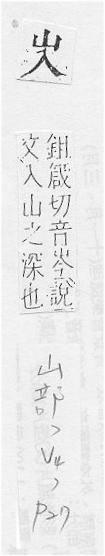 屳
鉏箴切音岑說
文入山之深也
山部>V4>P27